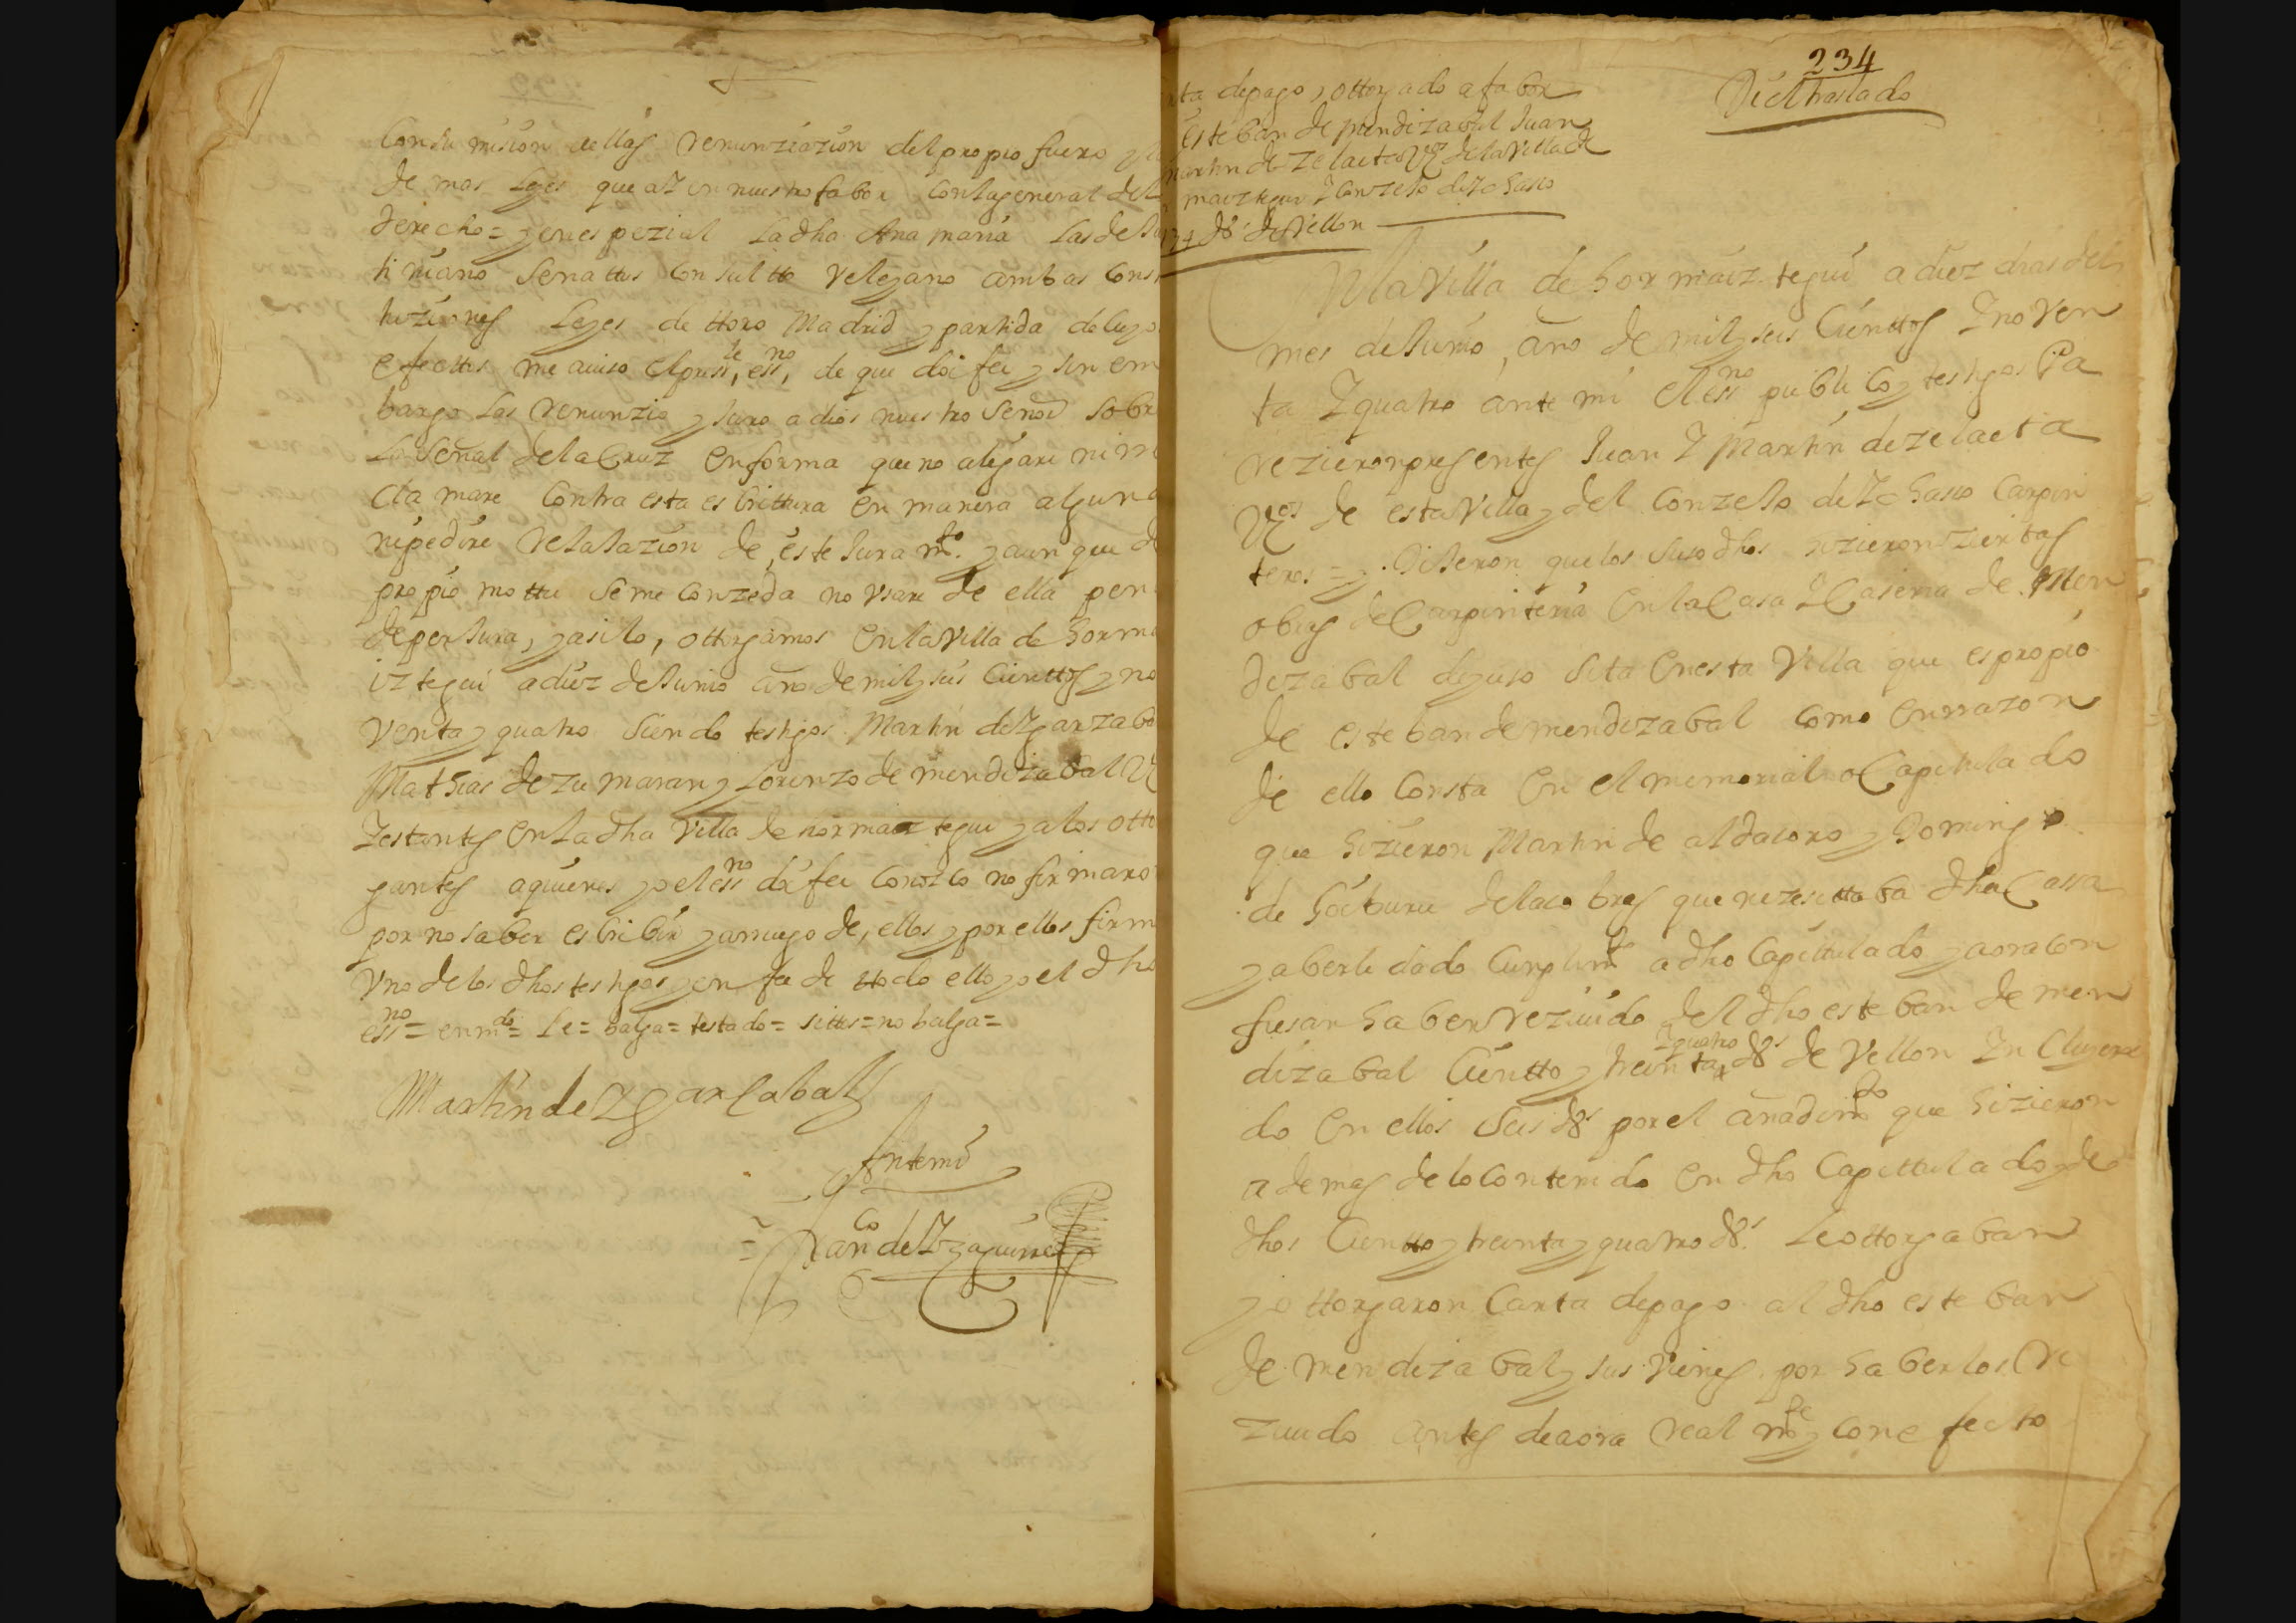 Con su mision de llas renunziazion del propio fuero y
de mas leyes que aZ en nuestro fabor con la general del
derecho = y en espezial la dha Ana maria las de Ju
tiniano Senattus Consultto Velejano ambas Cons
tuziones Leyes de ttoro Madrid y partida de cuyo
efecttos me auiso el press.te ess.no de que doi fee y sin em
bargo las renunzio y Juro a dios nuestro Señor sobre
la señal de la Cruz en forma que no alegare ni re
clamare contra esta escrittura en manera alguna
ni pedire relaxazion de este Juram.to y aun que de
propio mottu se me conzeda no vsare de ella pena
de perJura, y asi lo, ottorgamos en la Villa de horma
iztegui a diez de Junio año de mil y seis Cienttos y no
venta y quatro siendo testigos Martin de Ygarzabal
Mathias de zumaran y Lorenzo de mendizabal V
Y estantes en la dha Villa de normaiztegui y a los otto
gantes a quienes yo el ess.no doi fee conozco no firmaron
por no saber escribir y a rruego de, ellos y por ellos firm
vno de los dhos testigos y en fee de ttodo ello yo el dho
ess.no = enm.do = le = balga = testado = sittis = no balga =
Martin de Ygarçabal
Ante mi
Fran.co de Yzaguirre
234
Di el traslado
rta de pago, ottorgado a fabor
Esteban de mendizabal Juan
martin de zelaeta V.os de la Villa de
maiztegui Y conzejo de Ychaso
134 ds de vellon
En la Villa de hormaiztegui a diez dias del
mes de Junio, año de mil y seis Cienttos Y noven
ta Y quatro ante mi el ess.no publico y testigos Pa
rezieron presentes Juan Y Martin de zelaeta
V.os de esta Villa y del Conzejo de Ychaso Carpin
teros = y dixeron que los suso dhos izieron ziertas
obras de Carpinteria en la Casa Y Caseria de Men
dizabal de yuso sita en esta Villa que es propio
de esteban de mendizabal como en rrazon
de ello consta en el memorial o Capitulado
que hizieron Martin de aldasoro y Domingo
de Goiburu de las obras que nezesittaba dha Cassa
y aberle dado Cunplim.to a dho Capittulado y aora con
fiesan haber rezauido del dho esteban de men
dizabal Cientto y treinta Yquatro ds de Vellon Yncluyen
do en ellos seis ds por el añadim.to que hizieron
ademas de lo contenido en dho Capittulado y de
dhos Cientto y treinta y quatro ds. le ottorgaban
y ottorgaron Carta de pago al dho esteban
de mendizabal y sus vienes por haberlos re
zuido antes de aora real m.te y con efecto